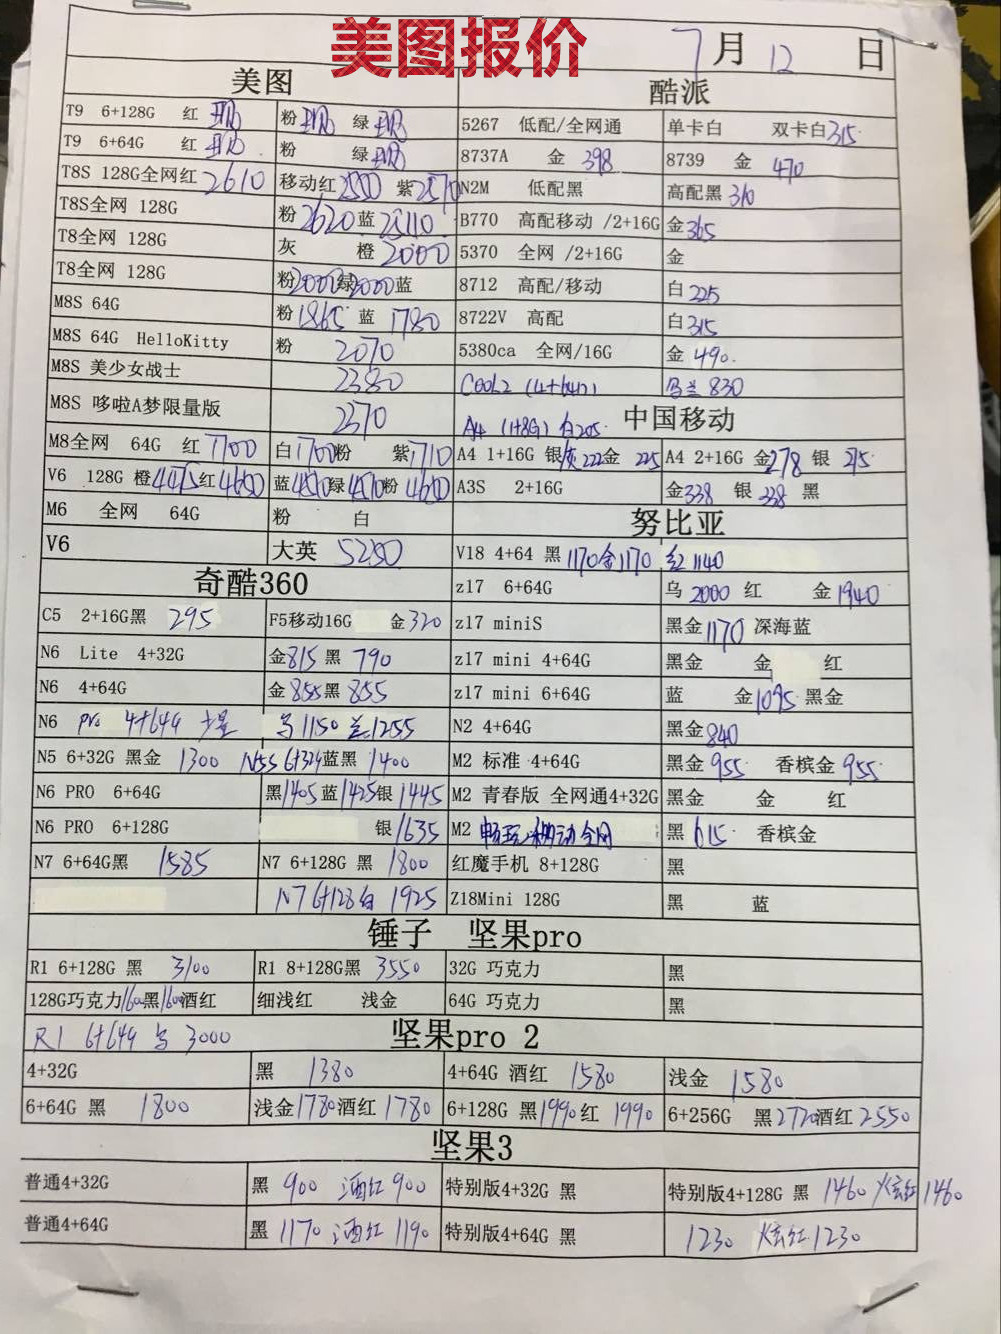 美图报价
7月12日
美图 酷派
T9 6+128G 红 粉 绿 5267 低配/全网通 单卡白 双卡白315
T9 6+64G 红 粉 绿 8737A 金 398 8739 金 470
T8S 128G全网红2610 移动红2550 紫2570 N2M 低配黑 高配黑310
T8S全网 128G 粉2620蓝 B770 高配移动 /2+16G 金365
T8全网 128G 灰 橙2000 5370 全网 /2+16G 金
T8全网 128G 粉2000绿2000蓝 8712 高配/移动 白225
M8S 64G 粉1865 蓝 1780 8722V 高配 白315
M8S 64G HelloKitty 粉 2070 5380ca 全网/16G 金 490.
M8S 美少女战士 2380 COOL2 (4+64) 乌兰 830
M8S 哆啦A梦限量版 2370 A4 (1+8G) 白205. 中国移动
M8全网 64G 红1700 白1700粉 紫1710 A4 1+16G 银灰222金 225 A4 2+16G 金278 银 275
V6 128G 橙4475红4650 蓝4570绿4570粉4600 A3S 2+16G 金338 银 338 黑
M6 全网 64G 粉 白 努比亚
V6 大英 5250 V18 4+64 黑1170金1170 红1140
奇酷360 z17 6+64G 乌2000 红 金1940
C5 2+16G黑 295 F5移动16G 金320 z17 miniS 黑金1170 深海蓝
N6 Lite 4+32G 金815黑 790 z17 mini 4+64G 黑金 金 红
N6 4+64G 金855黑855 z17 mini 6+64G 蓝 金1095 黑金
N6 pro 4+64G 乌1150 兰1255 N2 4+64G 黑金840
N5 6+32G 黑金 1300 N5S 6+32G蓝黑 1400 M2 标准 4+64G 黑金 955 香槟金 955
N6 PRO 6+64G 黑1405蓝1425银1445 M2 青春版 全网通4+32G 黑金 金 红
N6 PRO 6+128G 银1635 M2 畅玩 移动全网 黑 615 香槟金
N7 6+64G黑 1585 N7 6+128G 黑 1800 红魔手机 8+128G 黑
N7 6+128白 1925 Z18Mini 128G 黑 蓝
锤子 坚果pro
R1 6+128G 黑 3100 R1 8+128G黑 3550 32G 巧克力 黑
128G巧克力1600黑1600酒红 细浅红 浅金 64G 巧克力 黑
R1 6+64G 乌 3000 坚果pro 2
4+32G 黑 1380 4+64G 酒红 1580 浅金 1580
6+64G 黑 1800 浅金1780酒红1780 6+128G 黑1990红 1990 6+256G 黑2720酒红2550
坚果3
普通4+32G 黑 900 酒红 900 特别版4+32G 黑 特别版4+128G 黑 1460 炫红1460
普通4+64G 黑 1170 酒红 1190 特别版4+64G 黑 1230 炫红1230